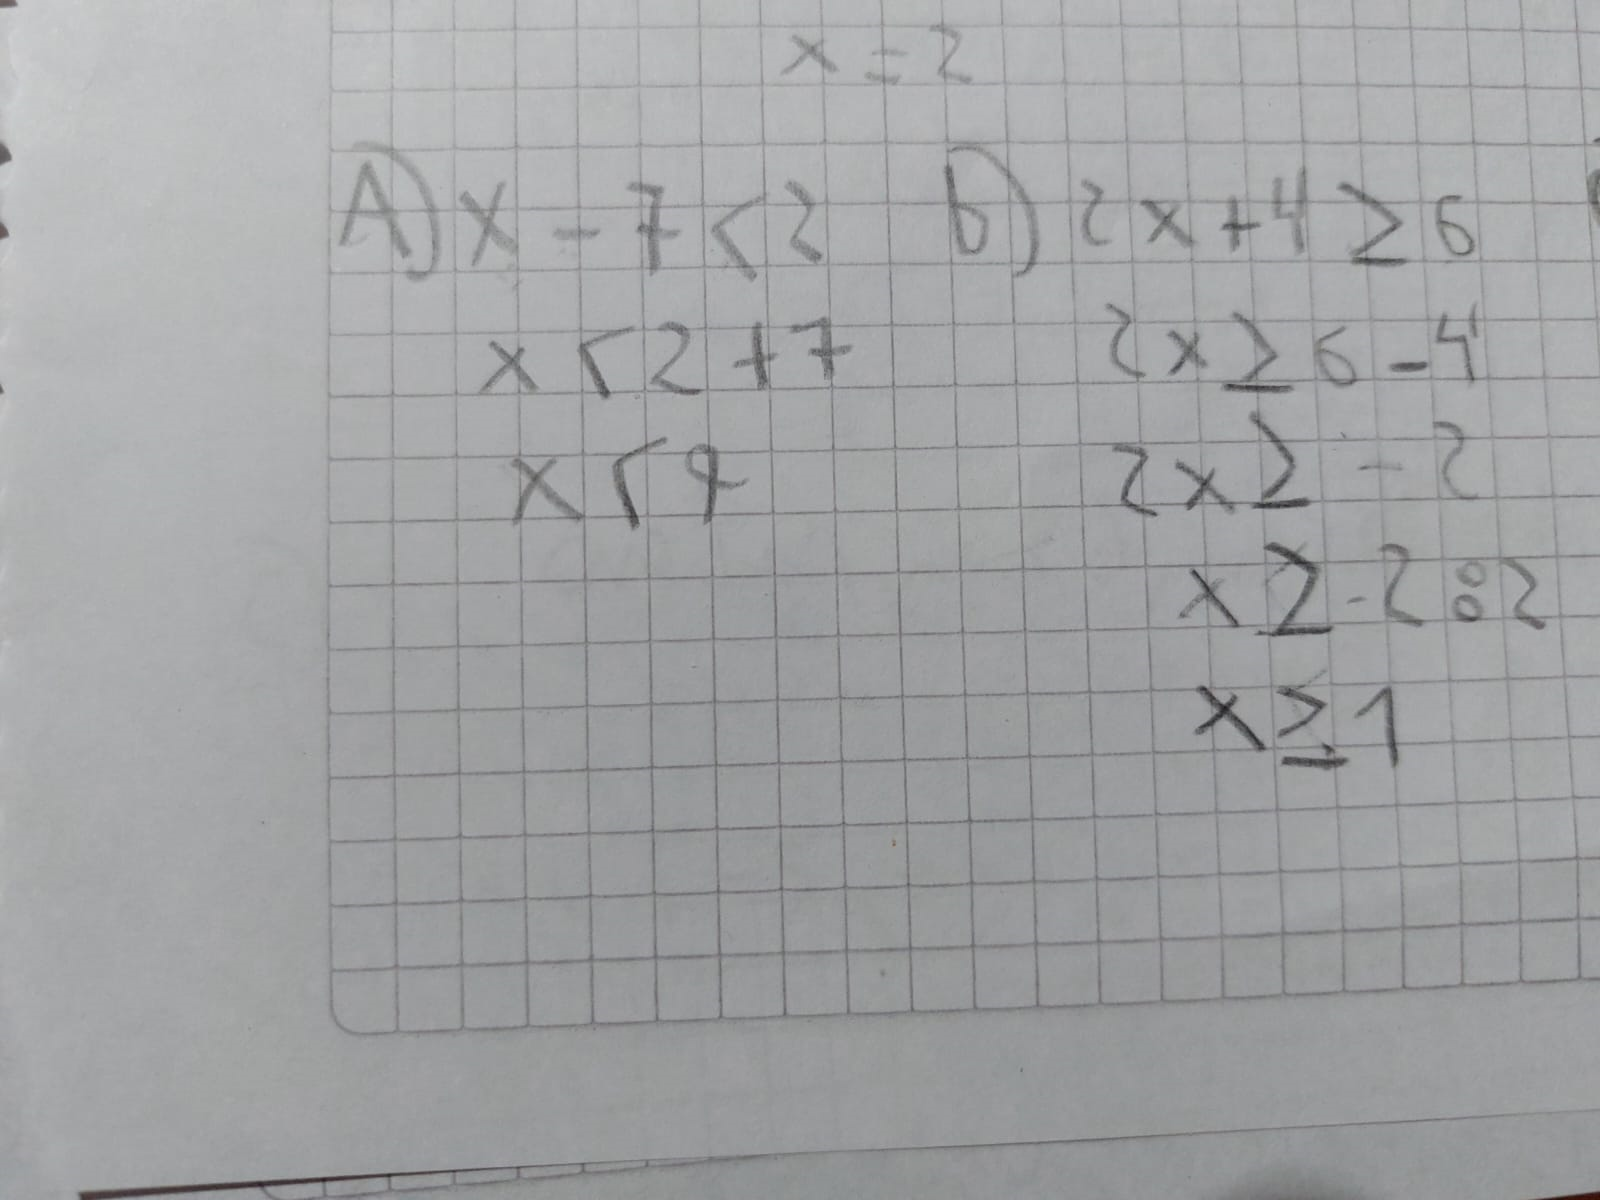 x = 2
A) x - 7 < 2
x < 2 + 7
x < 9
b) 2x + 4 ≥ 6
2x ≥ 6 - 4
2x ≥ - 2
x ≥ - 2 : 2
x ≥ 1